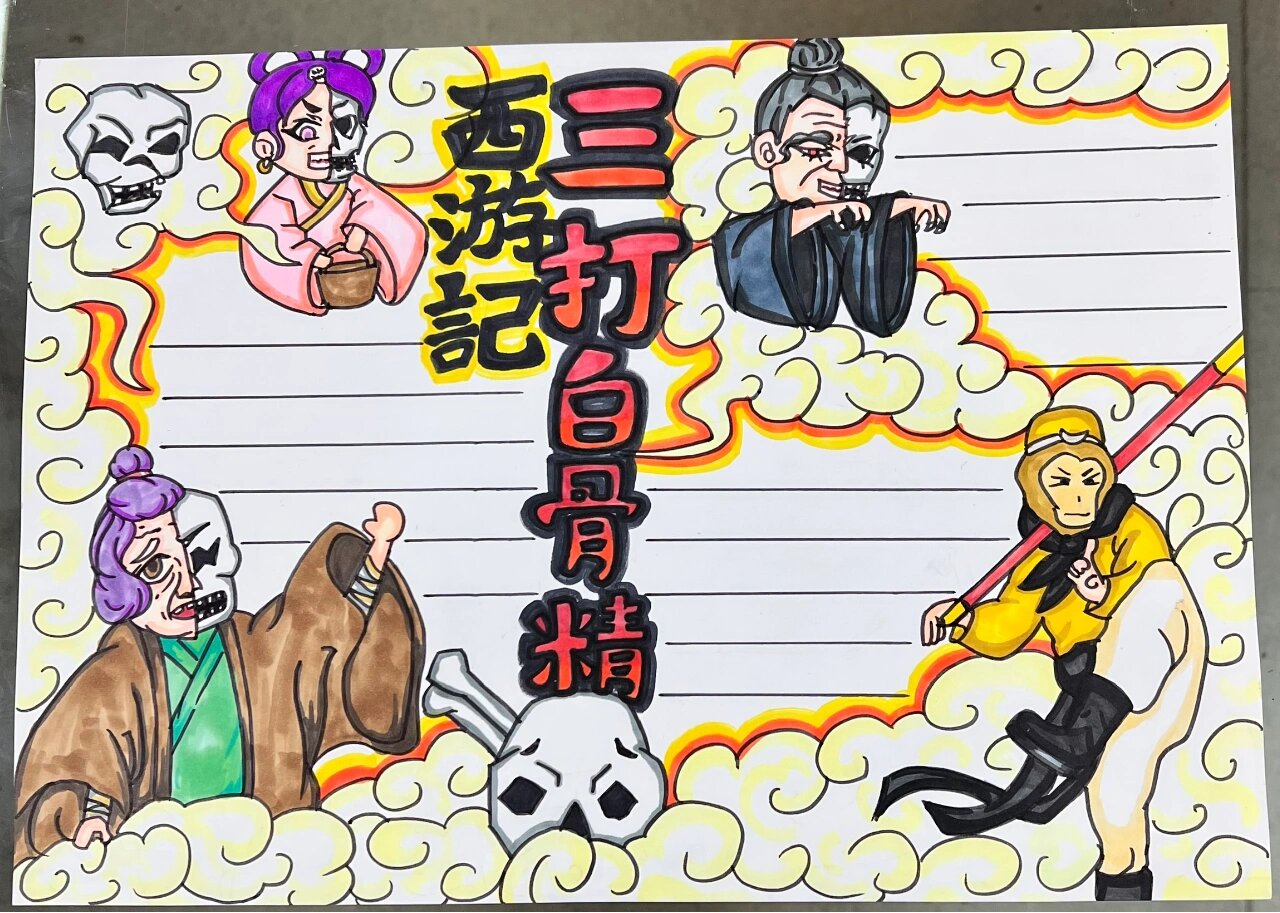 西游記
三打白骨精